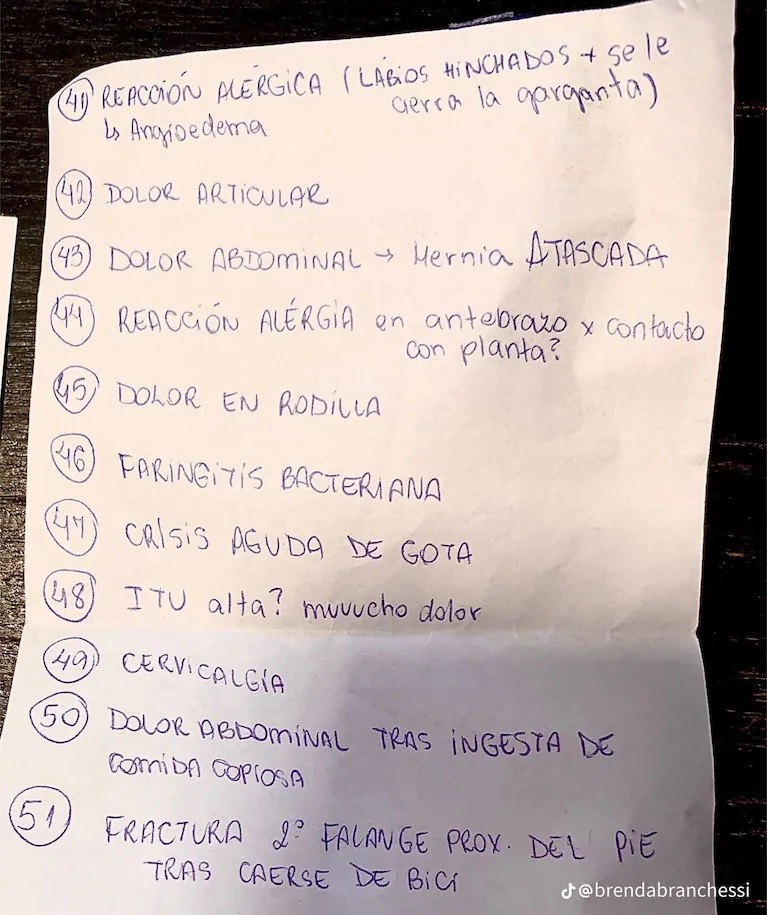 41 REACCIÓN ALÉRGICA (LABIOS HINCHADOS + se le
cierra la garganta)
↳ Angioedema
42 DOLOR ARTICULAR
43 DOLOR ABDOMINAL → Hernia ATASCADA
44 REACCIÓN ALÉRGIA en antebrazo x contacto
con planta?
45 DOLOR EN RODILLA
46 FARINGITIS BACTERIANA
47 CRISIS AGUDA DE GOTA
48 ITU alta? muuucho dolor
49 CERVICALGIA
50 DOLOR ABDOMINAL TRAS INGESTA DE
COMIDA COPIOSA
51 FRACTURA 2º FALANGE PROX. DEL PIE
TRAS CAERSE DE BICI
@brendabranchessi